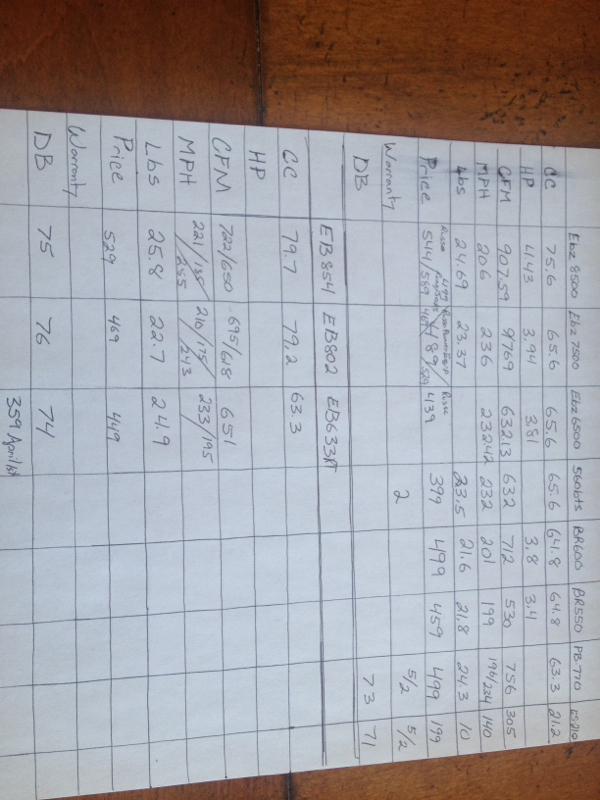 Ebz 8500 Ebz 7500 Ebz 6500 560bts BR600 BR550 PB-770 ES210
CC 75.6 65.6 65.6 65.6 64.8 64.8 63.3 21.2
HP 4.43 3.94 3.81 3.8 3.4
CFM 907.59 632 712 530 756 305
MPH 206 236 232 201 199 140
Lbs 24.69 23.37 23.5 21.6 21.8 24.3 10
Price 544/ 439 399 499 459 499 199
Warranty 2 5/2 5/2
DB 73 71
EB854 EB802
CC 79.7 79.2 63.3
HP
CFM 722/650 695/618 651
MPH 221/185/255 210/175/243 233/195
Lbs 25.8 22.7 24.9
Price 529 469 449
Warranty
DB 75 76 74
359 April 1st